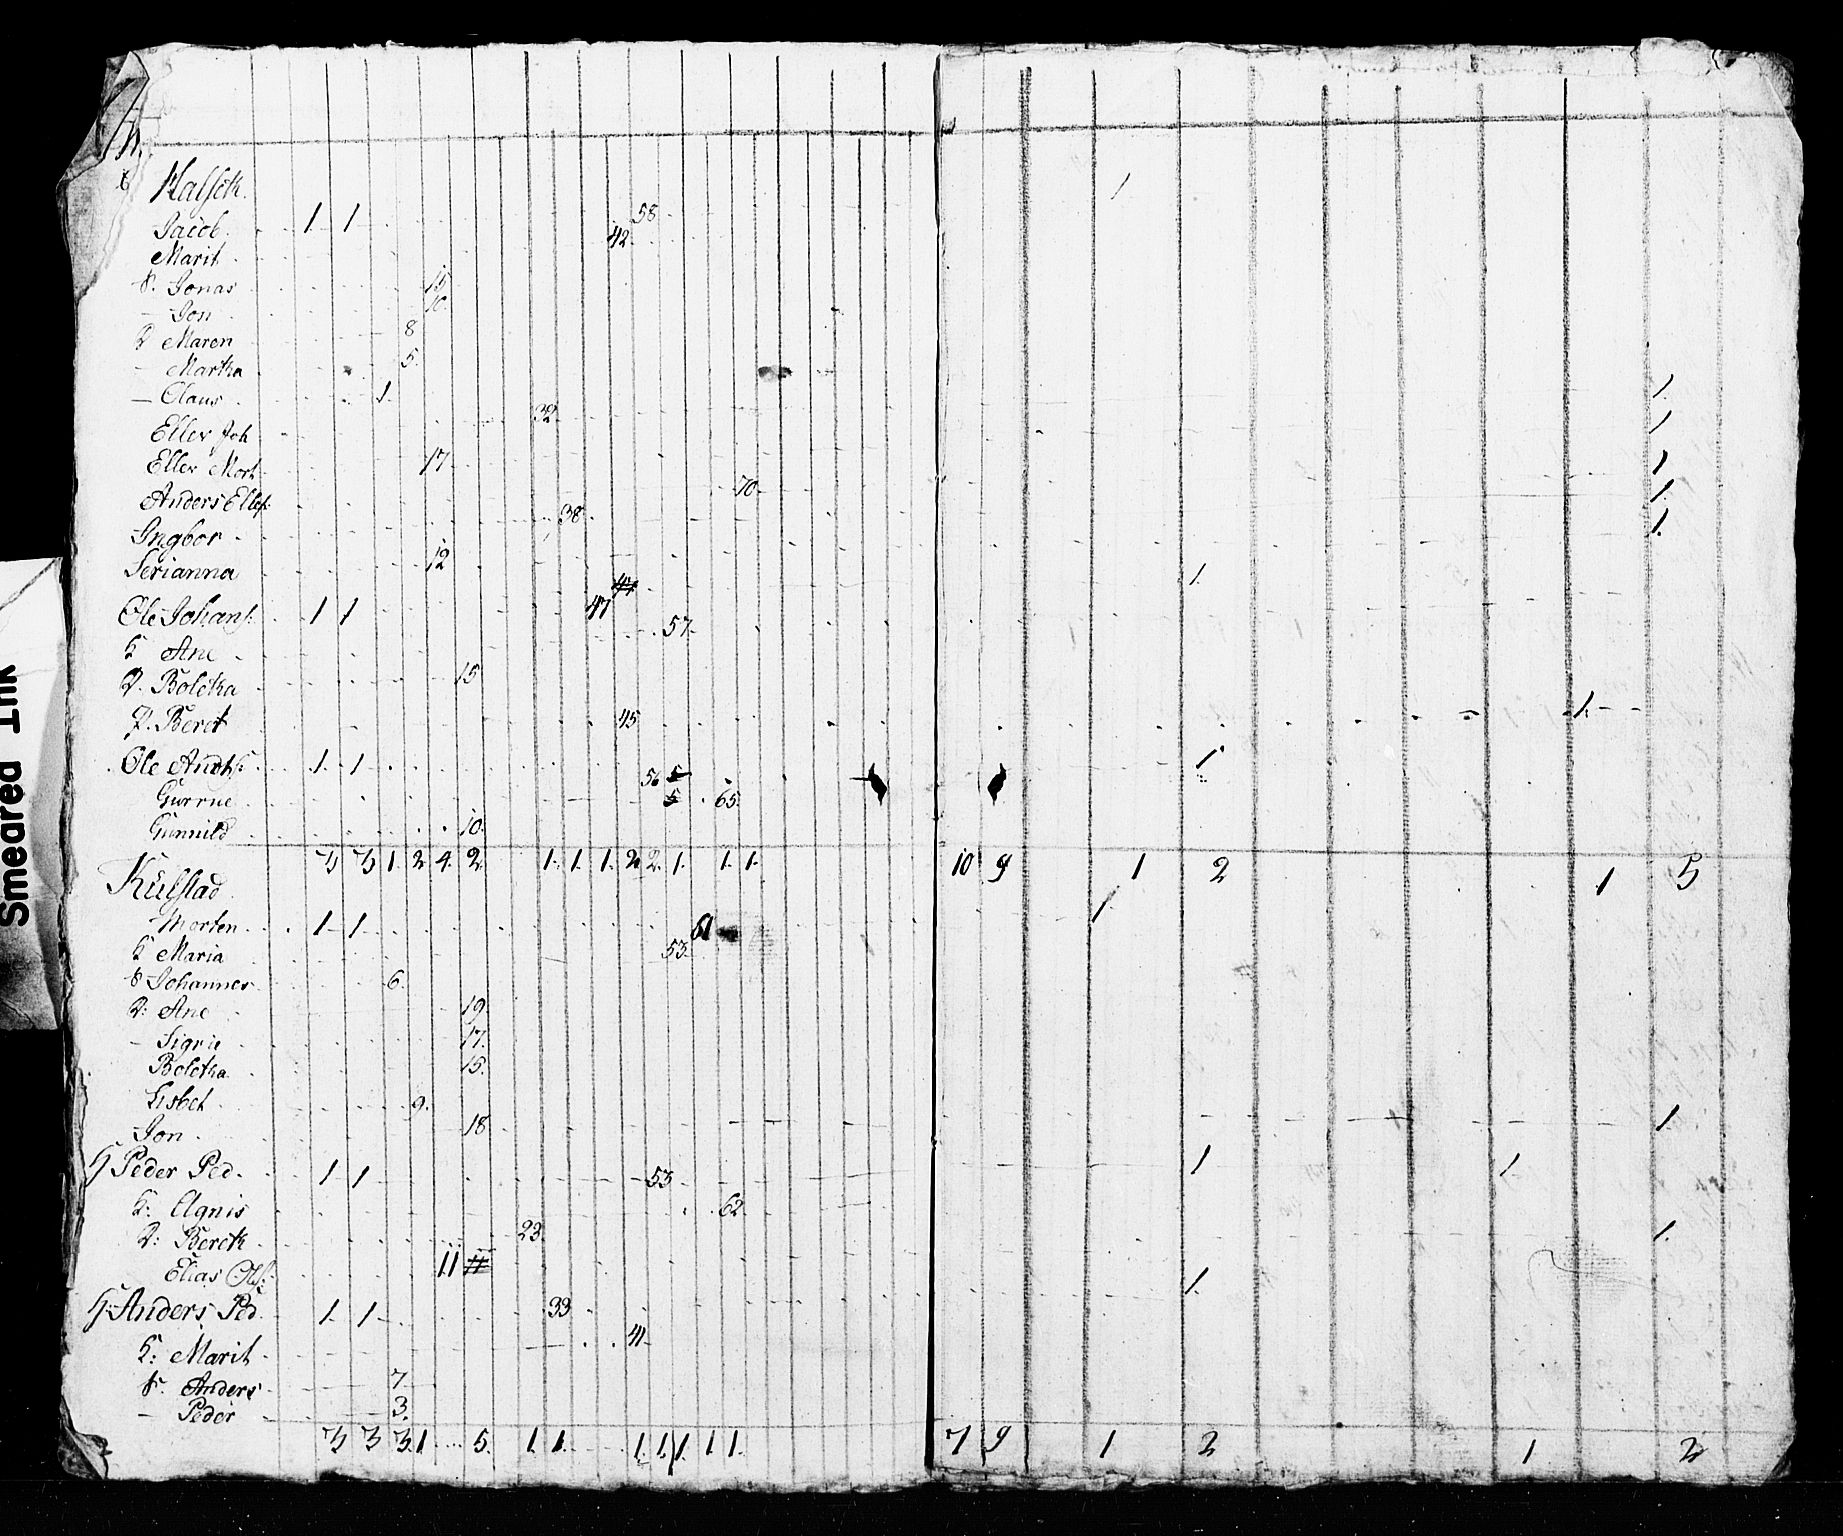 Halset
1
Jacob 1 1 58
Marit 42
S. Jonas 15
– Jon 10
D Maren 8
– Martha 5
– Claus 1 1
Eller Joh 32 1
Eller Mort 17 1
Anders Ellefs: 70 1
Ingbor 38 1
Serianna 12
Ole Johans: 1 1 47 1
K Ane 57
D. Boletha 15
P. Beret 45 1
Ole Andrs: 1 1 56 1
Gurrue 65
Gunnild 10
3 3 1 2 4 2 1 1 1 2 2 1 1 1 10 9 1 2 1 5
Külstad
Morten 1 1 61 1
K Maria 53
S Johannes 6
D: Ane 19
– Sigrie 17
Boletha 15
Lisbet 9
Jon 18 1
H Peder Ped. 1 1 53 1 1
K: Agnis 62
D: Bereth 23 1
Elias Ols: 11
H: Anders Ped 1 1 33 1
K: Marit 41
S. Anders 7
– Peder 3
3 3 3 1 5 1 1 1 1 1 1 1 7 9 1 2 1 2
Smeared Ink